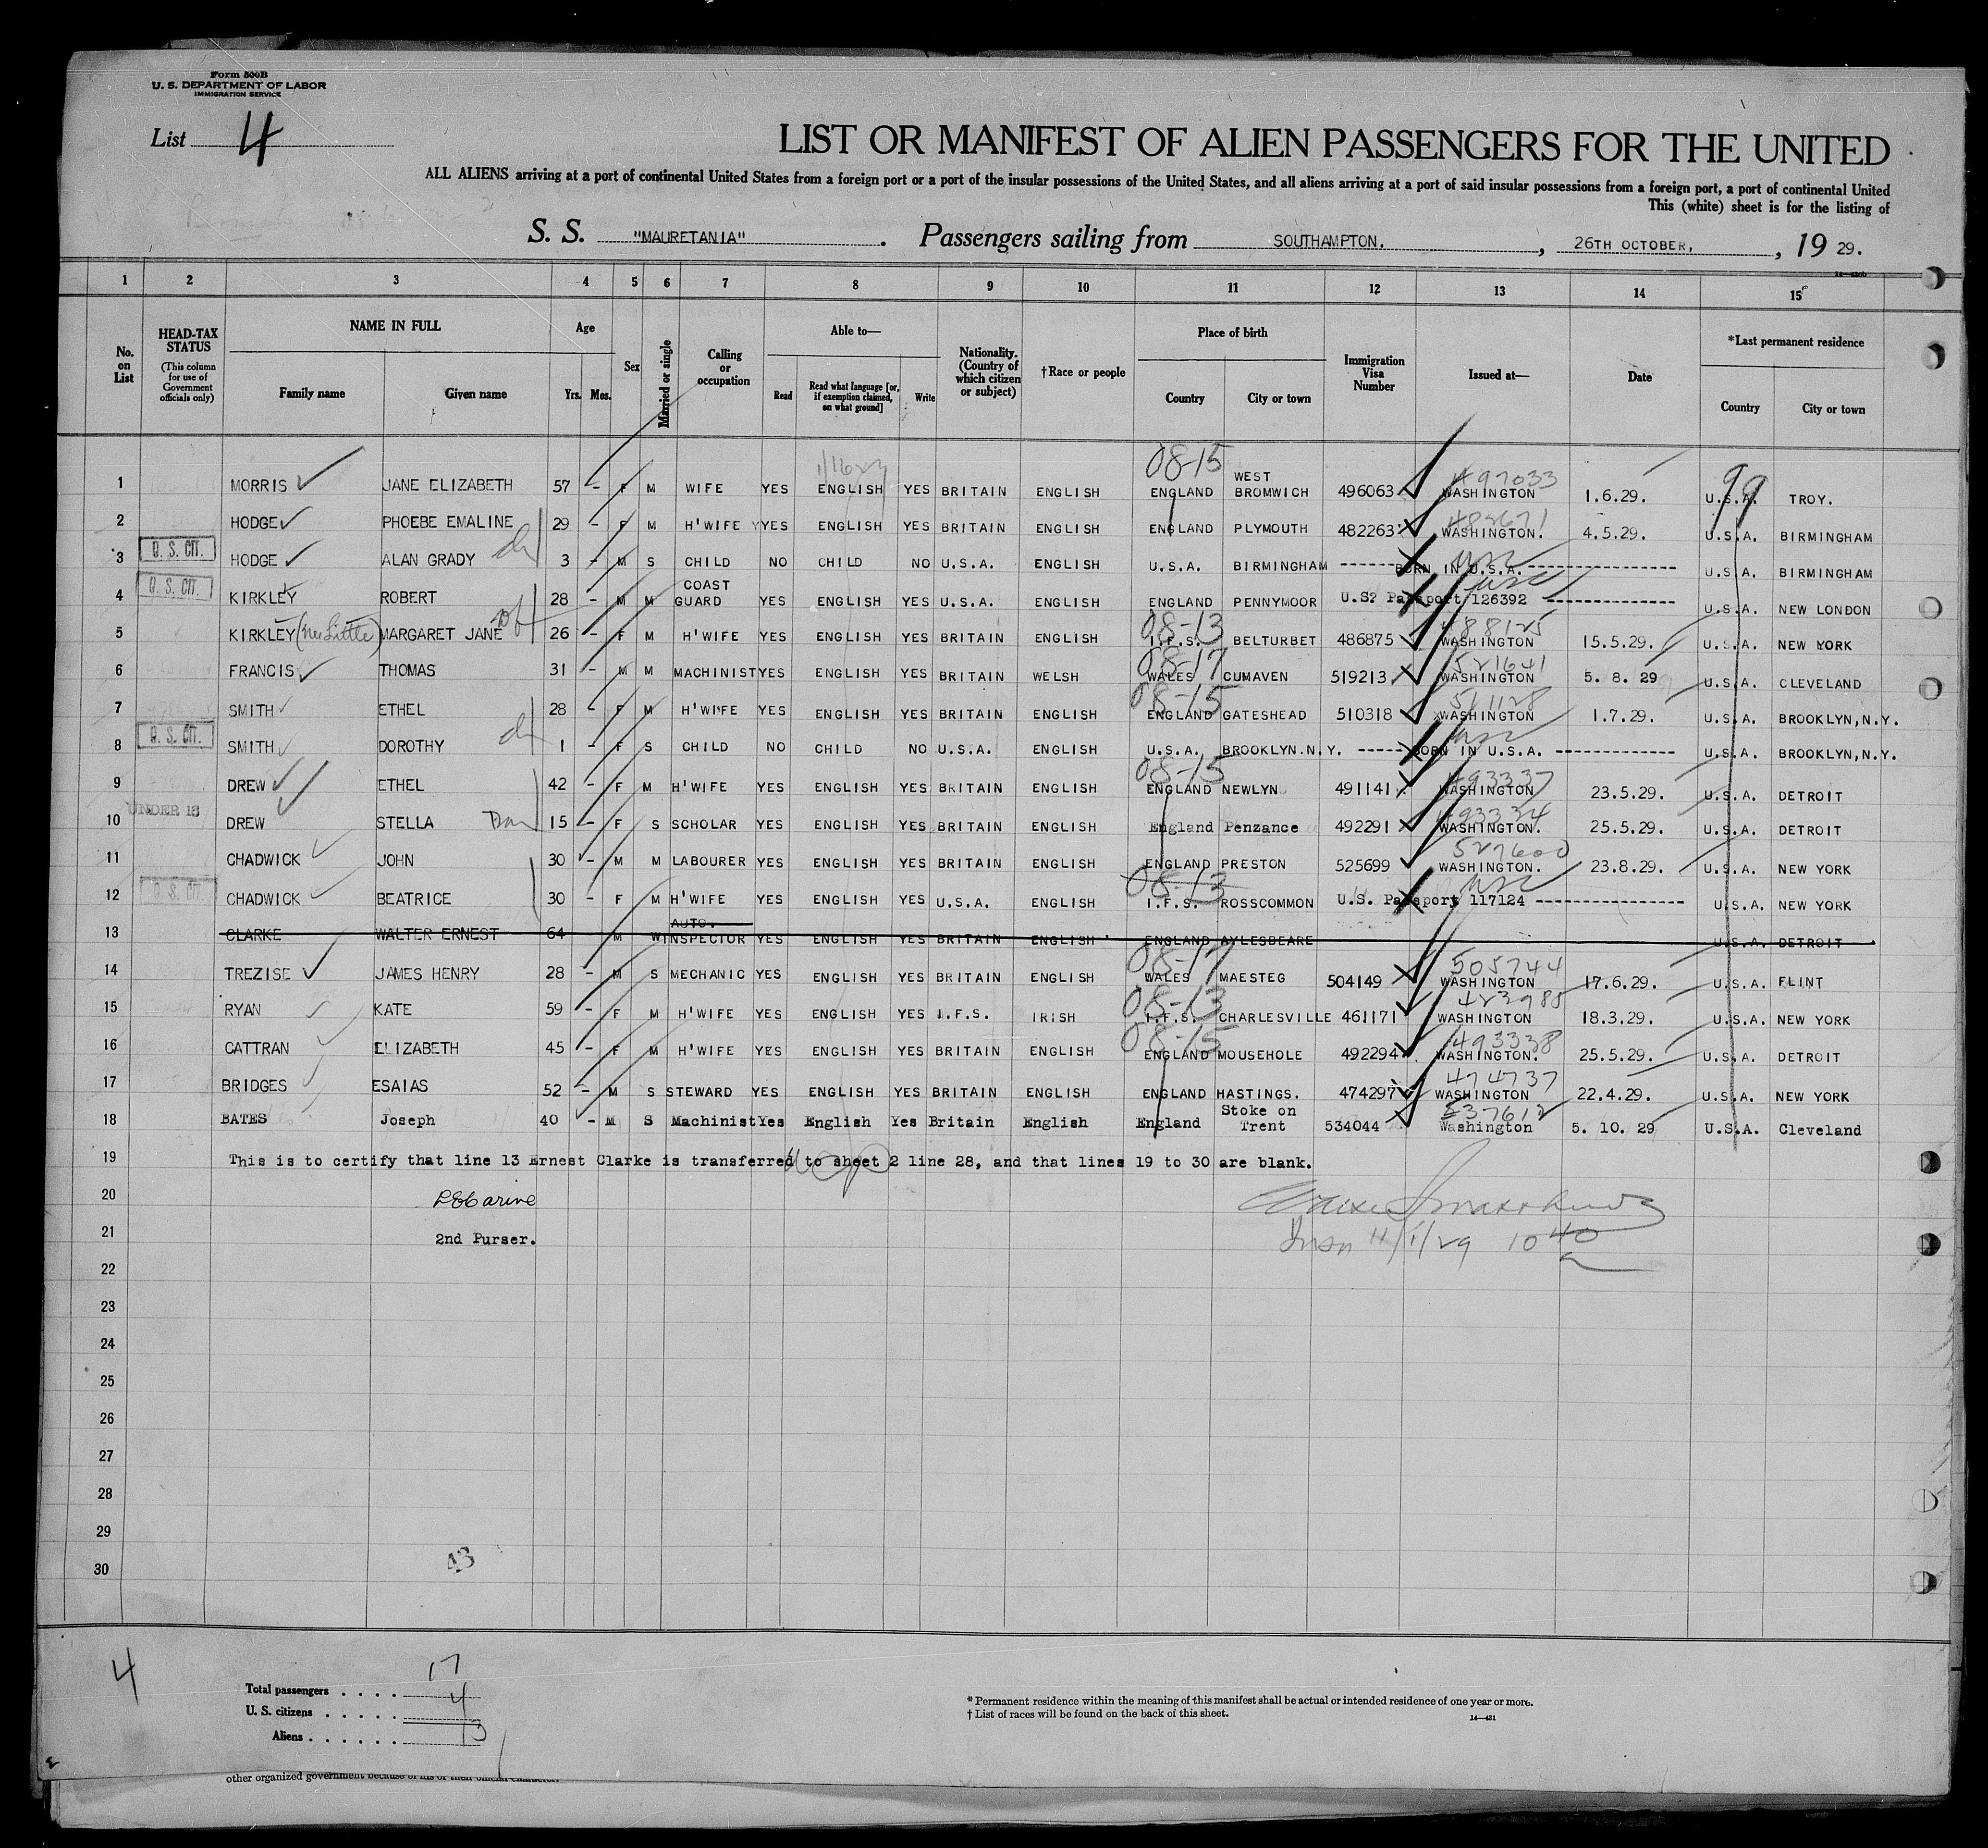 Form 500B
U. S. DEPARTMENT OF LABOR
IMMIGRATION SERVICE
List 4
LIST OR MANIFEST OF ALIEN PASSENGERS FOR THE UNITED
ALL ALIENS arriving at a port of continental United States from a foreign port or a port of the insular possessions of the United States, and all aliens arriving at a port of said insular possessions from a foreign port, a port of continental United
This (white) sheet is for the listing of
S. S. "MAURETANIA". Passengers sailing from SOUTHAMPTON., 26TH OCTOBER, , 19 29.
1 2 3 4 5 6 7 8 9 10 11 12 13 14 15
No. on List
HEAD-TAX STATUS (This column for use of Government officials only)
NAME IN FULL Family name Given name
Age Yrs. Mos.
Sex
Married or single
Calling or occupation
Able to— Read Read what language [or, if exemption claimed, on what ground] Write
Nationality. (Country of which citizen or subject)
†Race or people
Place of birth Country City or town
Immigration Visa Number
Issued at—
Date
*Last permanent residence Country City or town
1 MORRIS JANE ELIZABETH 57 - F M WIFE YES ENGLISH YES BRITAIN ENGLISH 08-15 ENGLAND WEST BROMWICH 496063 497033 WASHINGTON 1.6.29. 99 U.S.A. TROY.
2 HODGE PHOEBE EMALINE 29 - F M H'WIFE YES ENGLISH YES BRITAIN ENGLISH ENGLAND PLYMOUTH 482263 482671 WASHINGTON. 4.5.29. U.S.A. BIRMINGHAM
3 U.S. CIT. HODGE ALAN GRADY ch 3 - M S CHILD NO CHILD NO U.S.A. ENGLISH U.S.A. BIRMINGHAM ------BORN IN U.S.A.--------------- USC U.S.A. BIRMINGHAM
4 U.S. CIT. KIRKLEY ROBERT 28 - M M COAST GUARD YES ENGLISH YES U.S.A. ENGLISH ENGLAND PENNYMOOR U.S. Passport 126392 ------------- USC U.S.A. NEW LONDON
5 KIRKLEY (nee Little) MARGARET JANE wf 26 - F M H'WIFE YES ENGLISH YES BRITAIN ENGLISH 08-13 I.F.S. BELTURBET 486875 488125 WASHINGTON 15.5.29. U.S.A. NEW YORK
6 FRANCIS THOMAS 31 - M M MACHINIST YES ENGLISH YES BRITAIN WELSH 08-17 WALES CUMAVEN 519213 521641 WASHINGTON 5. 8. 29 U.S.A. CLEVELAND
7 SMITH ETHEL 28 - F M H'WIFE YES ENGLISH YES BRITAIN ENGLISH 08-15 ENGLAND GATESHEAD 510318 511128 WASHINGTON 1.7.29. U.S.A. BROOKLYN,N.Y.
8 U.S. CIT. SMITH DOROTHY ch 1 - F S CHILD NO CHILD NO U.S.A. ENGLISH U.S.A. BROOKLYN.N.Y. -----BORN IN U.S.A. ------------ USC U.S.A. BROOKLYN,N.Y.
9 DREW ETHEL 42 - F M H'WIFE YES ENGLISH YES BRITAIN ENGLISH 08-15 ENGLAND NEWLYN 491141 493337 WASHINGTON 23.5.29. U.S.A. DETROIT
10 UNDER 16 DREW STELLA Dau 15 - F S SCHOLAR YES ENGLISH YES BRITAIN ENGLISH England Penzance 492291 493334 WASHINGTON. 25.5.29. U.S.A. DETROIT
11 CHADWICK JOHN 30 - M M LABOURER YES ENGLISH YES BRITAIN ENGLISH ENGLAND PRESTON 525699 527600 WASHINGTON. 23.8.29. U.S.A. NEW YORK
12 U.S. CIT. CHADWICK BEATRICE 30 - F M H'WIFE YES ENGLISH YES U.S.A. ENGLISH 08-13 I.F.S. ROSSCOMMON U.S. Passport 117124 --------------- USC U.S.A. NEW YORK
13 CLARKE WALTER ERNEST 64 M W AUTO. INSPECTOR YES ENGLISH YES BRITAIN ENGLISH ENGLAND AYLESBEARE U.S.A. DETROIT
14 TREZISE JAMES HENRY 28 - M S MECHANIC YES ENGLISH YES BRITAIN ENGLISH 08-17 WALES MAESTEG 504149 505744 WASHINGTON 17.6.29. U.S.A. FLINT
15 RYAN KATE 59 - F M H'WIFE YES ENGLISH YES I.F.S. IRISH 08-13 I.F.S. CHARLESVILLE 461171 WASHINGTON 18.3.29. U.S.A. NEW YORK
16 CATTRAN ELIZABETH 45 - F M H'WIFE YES ENGLISH YES BRITAIN ENGLISH 08-15 ENGLAND MOUSEHOLE 492294 493338 WASHINGTON. 25.5.29. U.S.A. DETROIT
17 BRIDGES ESAIAS 52 - M S STEWARD YES ENGLISH YES BRITAIN ENGLISH ENGLAND HASTINGS. 474297 474737 WASHINGTON 22.4.29. U.S.A. NEW YORK
18 BATES Joseph 40 - M S Machinist Yes English Yes Britain English England Stoke on Trent 534044 537612 Washington 5. 10. 29 U.S.A. Cleveland
19 This is to certify that line 13 Ernest Clarke is transferred to sheet 2 line 28, and that lines 19 to 30 are blank.
20
21 2nd Purser. Insp 11/1/29 10 40 a
22
23
24
25
26
27
28
29
30
43
4
Total passengers . . . . 17
U. S. citizens . . . . . 4
Aliens . . . . . . 13
* Permanent residence within the meaning of this manifest shall be actual or intended residence of one year or more.
† List of races will be found on the back of this sheet.
14—431
other organized government because of his or their official character.